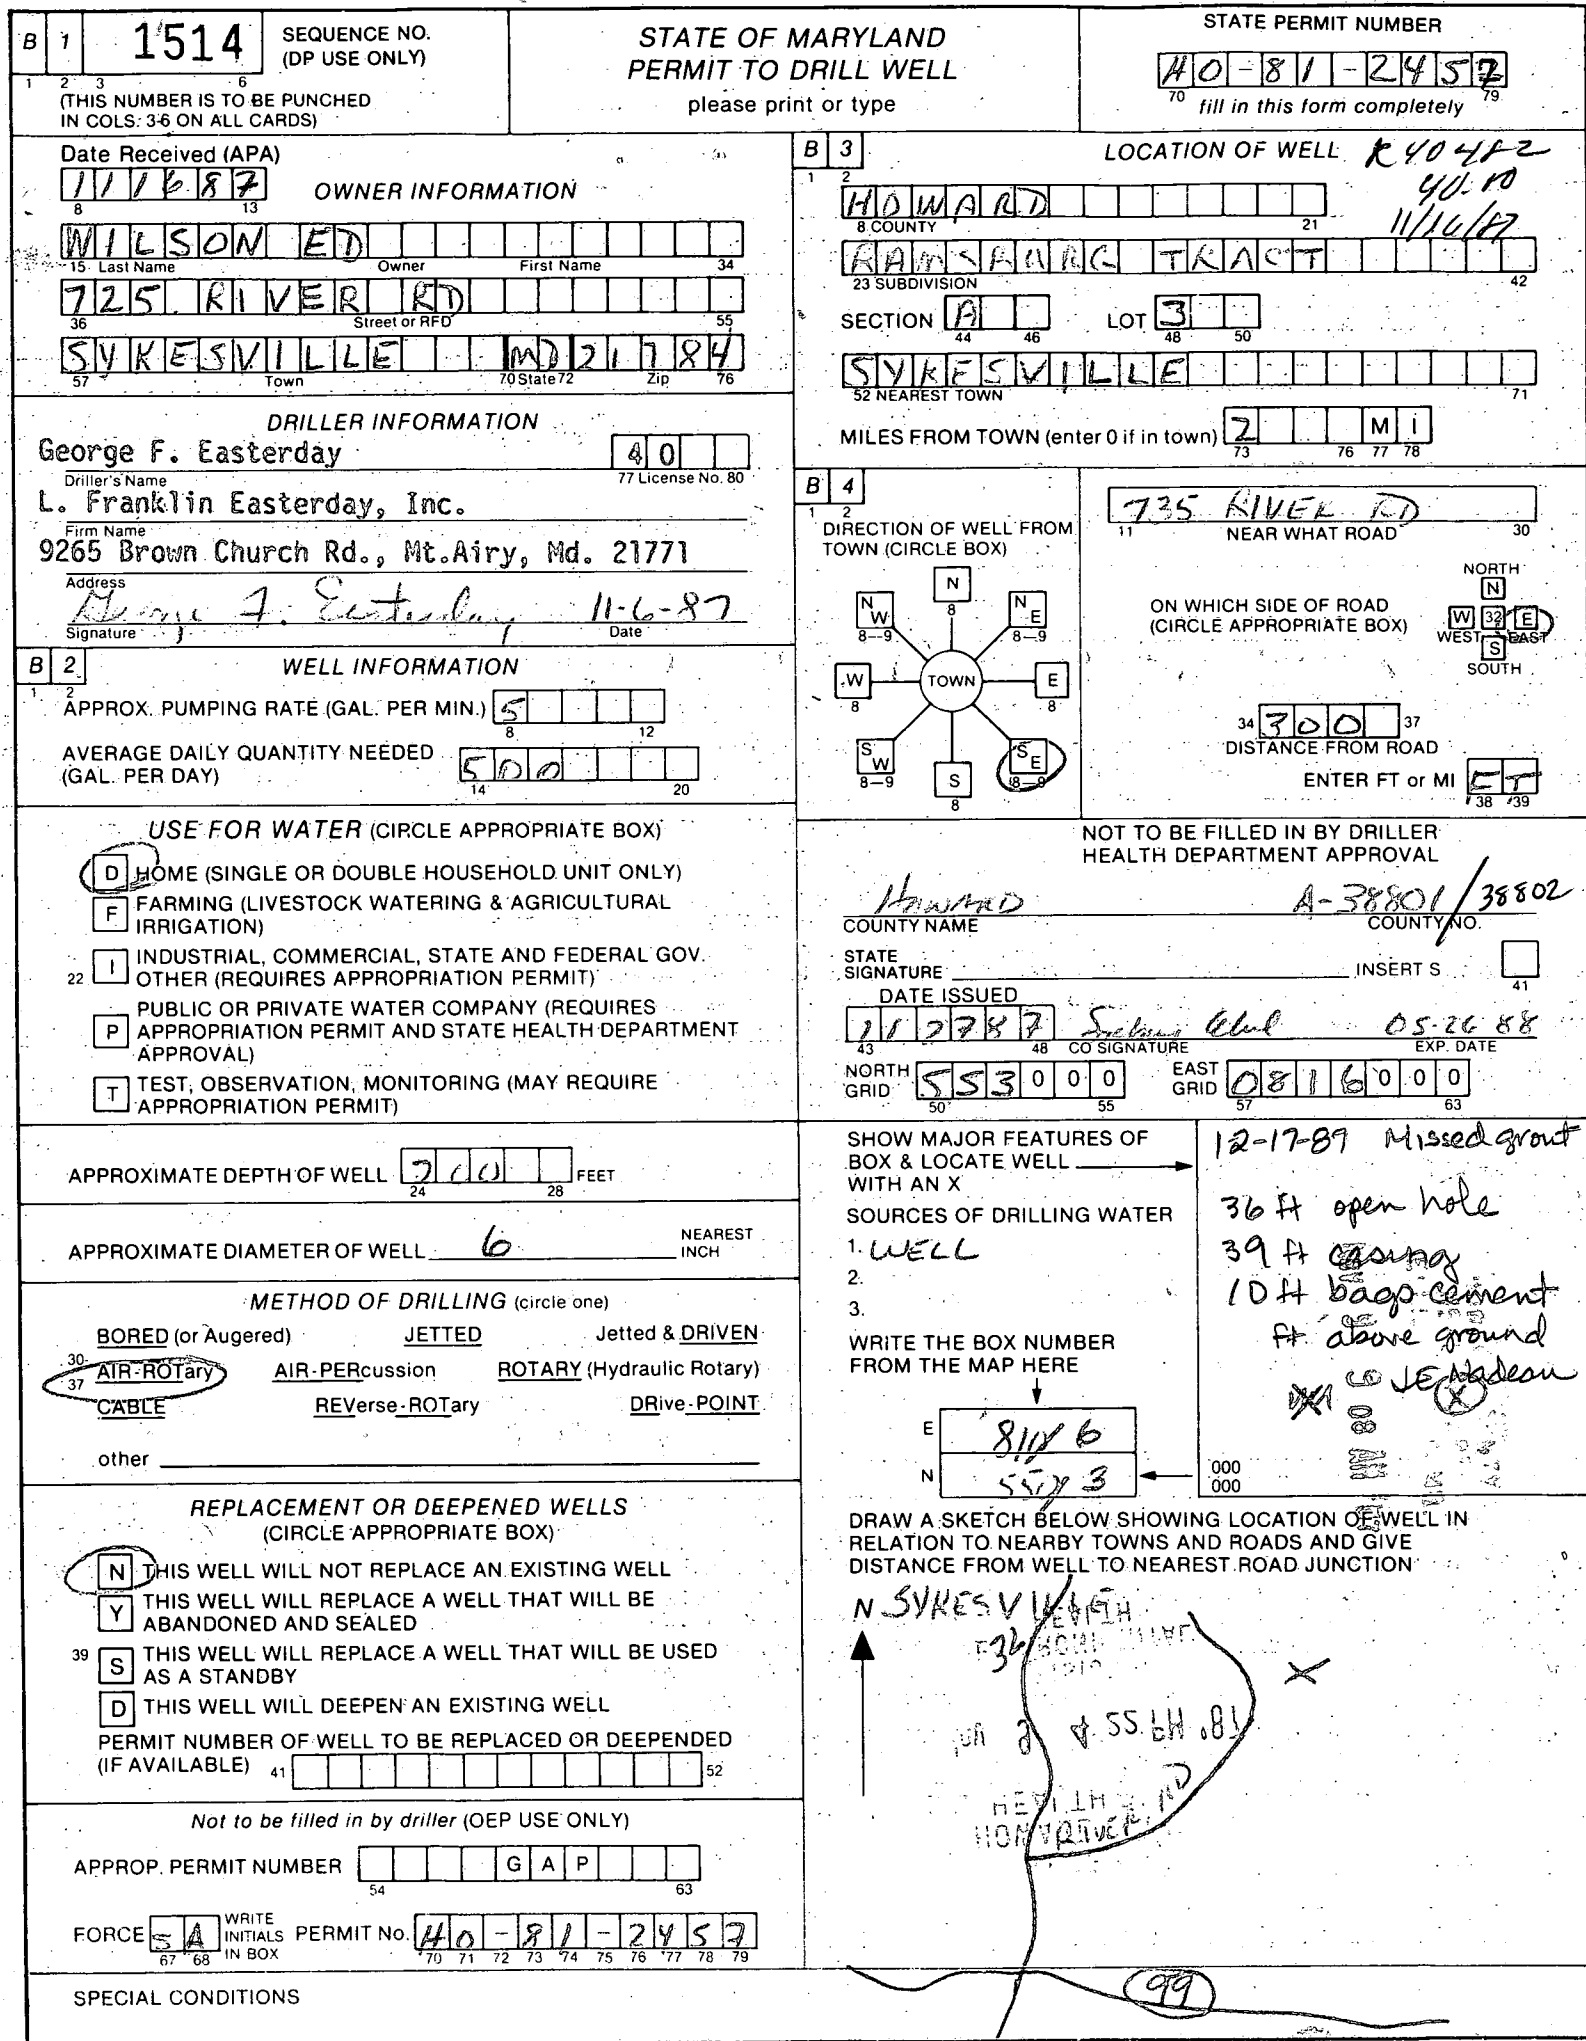 B 1 1514 SEQUENCE NO. (DP USE ONLY)
1 2 3 6
(THIS NUMBER IS TO BE PUNCHED
IN COLS. 3-6 ON ALL CARDS)
STATE OF MARYLAND
PERMIT TO DRILL WELL
please print or type
STATE PERMIT NUMBER
HO-81-2457
70 79
fill in this form completely
Date Received (APA)
111687
8 13
OWNER INFORMATION
WILSON ED
15 Last Name Owner First Name 34
725 RIVER RD
36 Street or RFD 55
SYKESVILLE MD 21784
57 Town 70 State 72 Zip 76
DRILLER INFORMATION
George F. Easterday 40
Driller's Name 77 License No. 80
L. Franklin Easterday, Inc.
Firm Name
9265 Brown Church Rd., Mt.Airy, Md. 21771
Address
George F. Easterday 11-6-87
Signature Date
B 2 WELL INFORMATION
1 2
APPROX. PUMPING RATE (GAL. PER MIN.) 5
8 12
AVERAGE DAILY QUANTITY NEEDED
(GAL. PER DAY) 500
14 20
USE FOR WATER (CIRCLE APPROPRIATE BOX)
D HOME (SINGLE OR DOUBLE HOUSEHOLD UNIT ONLY)
F FARMING (LIVESTOCK WATERING & AGRICULTURAL
IRRIGATION)
22 I INDUSTRIAL, COMMERCIAL, STATE AND FEDERAL GOV.
OTHER (REQUIRES APPROPRIATION PERMIT)
P PUBLIC OR PRIVATE WATER COMPANY (REQUIRES
APPROPRIATION PERMIT AND STATE HEALTH DEPARTMENT
APPROVAL)
T TEST, OBSERVATION, MONITORING (MAY REQUIRE
APPROPRIATION PERMIT)
APPROXIMATE DEPTH OF WELL 200 FEET
24 28
APPROXIMATE DIAMETER OF WELL 6 NEAREST
INCH
METHOD OF DRILLING (circle one)
BORED (or Augered) JETTED Jetted & DRIVEN
30 37 AIR-ROTary AIR-PERcussion ROTARY (Hydraulic Rotary)
CABLE REVerse-ROTary DRive-POINT
other
REPLACEMENT OR DEEPENED WELLS
(CIRCLE APPROPRIATE BOX)
N THIS WELL WILL NOT REPLACE AN EXISTING WELL
Y THIS WELL WILL REPLACE A WELL THAT WILL BE
ABANDONED AND SEALED
39 S THIS WELL WILL REPLACE A WELL THAT WILL BE USED
AS A STANDBY
D THIS WELL WILL DEEPEN AN EXISTING WELL
PERMIT NUMBER OF WELL TO BE REPLACED OR DEEPENDED
(IF AVAILABLE) 41 52
Not to be filled in by driller (OEP USE ONLY)
APPROP. PERMIT NUMBER GAP
54 63
FORCE SA WRITE INITIALS IN BOX PERMIT No. HO-81-2457
67 68 70 71 72 73 74 75 76 77 78 79
SPECIAL CONDITIONS
B 3 LOCATION OF WELL R40482
1 2 40.00
11/16/87
HOWARD
8 COUNTY 21
RAMSBURG TRACT
23 SUBDIVISION 42
SECTION A LOT 3
44 46 48 50
SYKESVILLE
52 NEAREST TOWN 71
MILES FROM TOWN (enter 0 if in town) 2 MI
73 76 77 78
B 4
1 2
DIRECTION OF WELL FROM
TOWN (CIRCLE BOX)
N 8
NW 8-9 NE 8-9
W 8 TOWN E 8
SW 8-9 SE 8-9
S 8
735 RIVER RD
11 NEAR WHAT ROAD 30
ON WHICH SIDE OF ROAD
(CIRCLE APPROPRIATE BOX)
NORTH
N
W 32 E
WEST EAST
S
SOUTH
34 300 37
DISTANCE FROM ROAD
ENTER FT or MI FT
38 39
NOT TO BE FILLED IN BY DRILLER
HEALTH DEPARTMENT APPROVAL
HOWARD A-38801/38802
COUNTY NAME COUNTY NO.
STATE
SIGNATURE INSERT S
41
DATE ISSUED
112787 05-26 88
43 48 CO SIGNATURE EXP. DATE
NORTH GRID 553000 EAST GRID 0816000
50 55 57 63
SHOW MAJOR FEATURES OF
BOX & LOCATE WELL
WITH AN X
SOURCES OF DRILLING WATER
1. WELL
2.
3.
WRITE THE BOX NUMBER
FROM THE MAP HERE
E 816
N 553
000
000
12-17-89 Missed grout
36 ft open hole
39 ft casing
10 ft bags cement
ft above ground
JE Nadeau
X
DRAW A SKETCH BELOW SHOWING LOCATION OF WELL IN
RELATION TO NEARBY TOWNS AND ROADS AND GIVE
DISTANCE FROM WELL TO NEAREST ROAD JUNCTION
N SYKESVILLE
32
X
RIVER RD
99